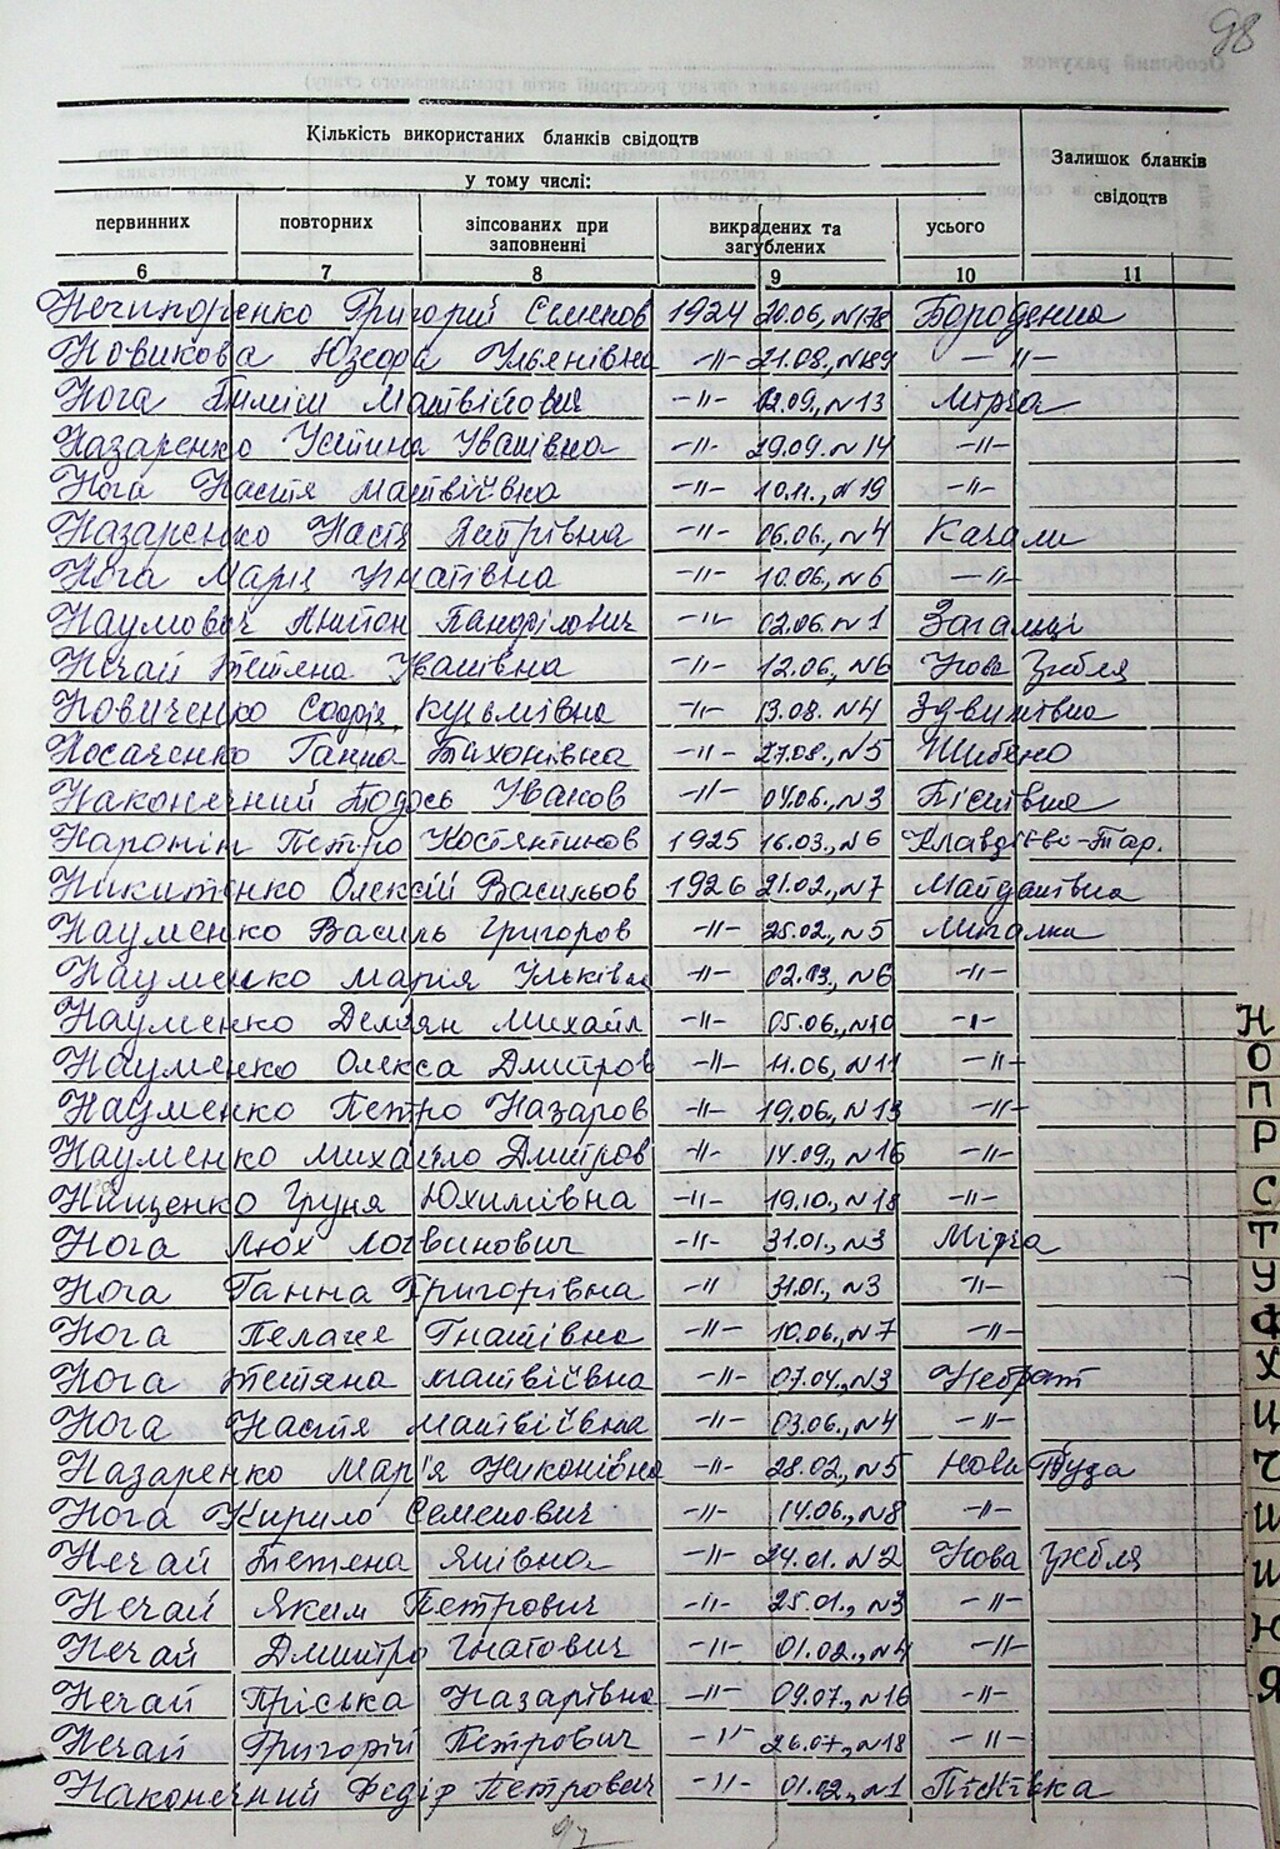 98
Кількість використаних бланків свідоцтв
Залишок бланків свідоцтв
у тому числі:
первинних повторних зіпсованих при заповненні викрадених та загублених усього
6 7 8 9 10 11
Нечипоренко Григорій Семенов 1924 20.06., N178 Бородянка
Новикова Юзефа Ульянівна -"- 21.08., N189 -"-
Нога Пиліп Матвійович -"- 02.09., N13 Мірча
Назаренко Устина Іванівна -"- 29.09. N14 -"-
Нога Настя Матвіївна -"- 10.11., N19 -"-
Назаренко Настя Петрівна -"- 06.06., N4 Качали
Нога Марія Ігнатівна -"- 10.06., N6 -"-
Наумович Антон Панфілович -"- 02.06. N1 Загальці
Нечай Тетяна Іванівна -"- 12.06., N6 Нова Гребля
Новиченко Софія Кузьмівна -"- 13.08. N4 Здвижівка
Носаченко Ганна Тихонівна -"- 27.08., N5 Шибено
Наконечний Тодось Іванов -"- 04.06., N3 Пісківка
Наронін Петро Костянтинов 1925 16.03., N6 Клавдієво-Тар.
Никитенко Олексій Васильов 1926 21.02., N7 Майданівка
Науменко Василь Григоров -"- 25.02., N5 Мигалки
Науменко Марія Ільківна -"- N6 -"-
Науменко Дем'ян Михайл -"- 05.06., N10 -"-
Науменко Олекса Дмитров -"- 11.06, N11 -"-
Науменко Петро Назаров -"- 19.06, N13 -"-
Науменко Михайло Дмитров -"- 14.09., N16 -"-
Нищенко Груня Юхимівна -"- 19.10., N18 -"-
Нога Логвинович -"- 31.01., N3 Мірча
Нога Ганна Григорівна -"- 31.01., N3 -"-
Нога Пелагея Гнатівна -"- 10.06., N7 -"-
Нога Тетяна Матвіївна -"- 07.04., N3 Небрат
Нога Настя Матвіївна -"- 03.06., N4 -"-
Назаренко Мар'я Никонівна -"- 28.02., N5 Нова Буда
Нога Кирило Семенович -"- 14.06., N8 -"-
Нечай Тетяна Янівна -"- 24.01. N2 Нова Гребля
Нечай Яким Петрович -"- 25.01., N3 -"-
Нечай Дмитро Гнатович -"- 01.02., N4 -"-
Нечай Пріська Назарівна -"- 09.07., N16 -"-
Нечай Григорій Петрович -"- 26.07., N18 -"-
Наконечний Федір Петрович -"- 01.02., N1 Пісківка
Н
О
П
Р
С
Т
У
Ф
Х
Ц
Ч
Ш
Щ
Ю
Я